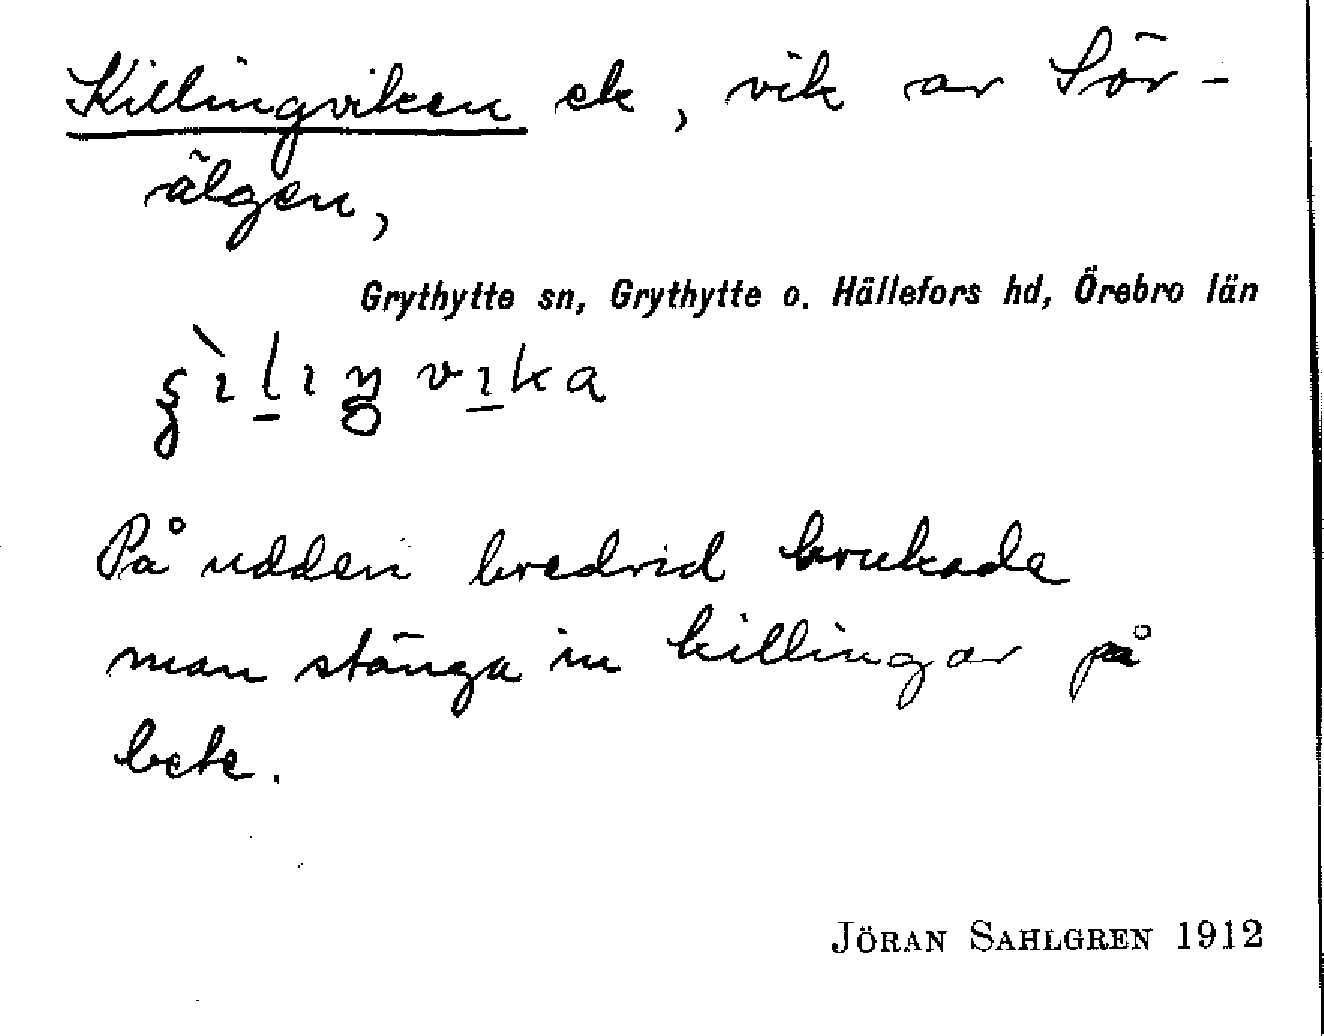 Killingviken ek, vik av Sör-
älgen,
Grythytte sn, Grythytte o. Hällefors hd, Örebro län
På udden bredvid brukade
man stänga in killingar på
bete.
JÖRAN SAHLGREN 1912